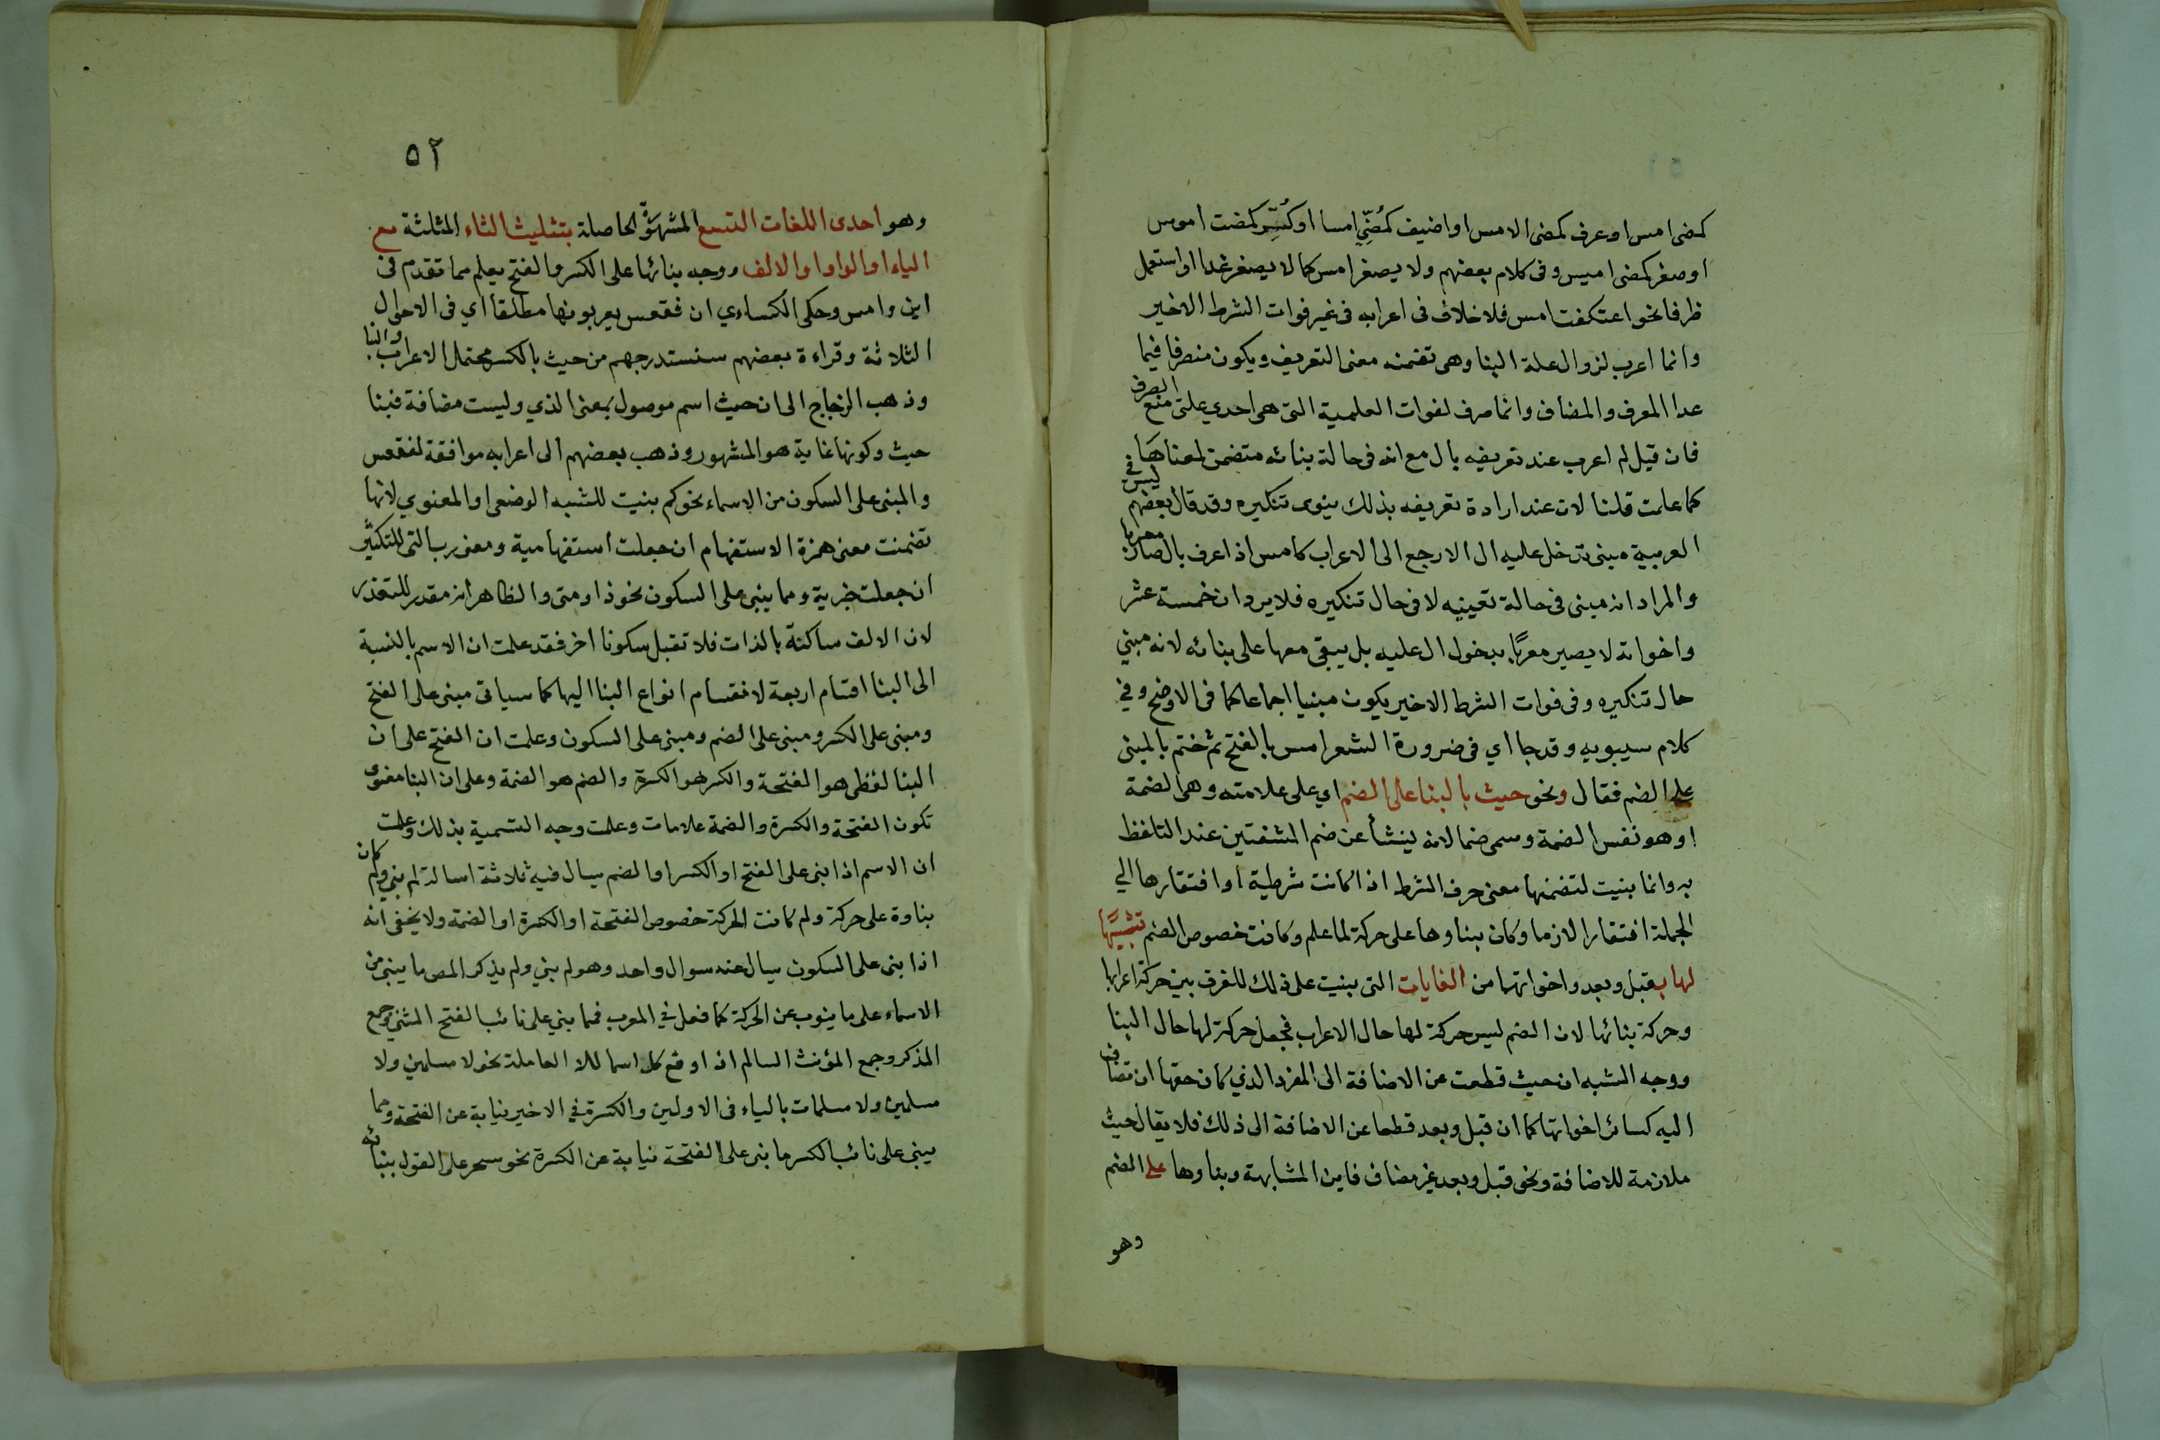 كمضى امس او عرف كمضى الامس او اضيف كمُضِّي امسا او كُسِّر كمضت اموس
او صغر كمضى اميس وفى كلام بعضهم ولا يصغر امس كما لا يصغر غدا او استعمل
ظرفا نحو اعتكفت امس فلا خلاف فى اعرابه فى غير فوات الشرط الاخير
وانما اعرب لزوال علة البنا وهى تضمنه معنى التعريف ويكون منصرفا فيما
عدا المعرف والمضاف وانما صرف لفوات العلمية التى هى احدى علتى منع الصرف
فان قيل لم اعرب عند تعريفه بال مع انه فى حالة بنائه متضمن لمعناها
كما علمت قلنا لان عند ارادة تعريفه بذلك ينوى تنكيره وقد قال بعضهم ليس فى
العربية مبنى تدخل عليه ال الا رجع الى الاعراب كامس اذا عرف بال صار معربا
والمراد انه مبنى فى حالة تعيينه لا فى حال تنكيره فلا يرد ان خمسة عشر
واخواته لا يصير معربًا بدخول ال عليه بل يبقى معها على بنائه لانه مبني
حال تنكيره وفى فوات الشرط الاخير يكون مبنيا اجماعا كما فى الاوضح وفي
كلام سيبويه وقد جا اي فى ضرورة الشعر امس بالفتح ثم ختم بالمبنى
على الضم فقال ونحو حيث بالبنا على الضم اي على علامته وهى الضمة
او هو نفس الضمة وسمى ضما لانه ينشأ عن ضم الشفتين عند التلفظ
به وانما بنيت لتضمنها معنى حرف الشرط اذا كانت شرطية او افتقارها الي
الجملة افتقارا لازما وكان بناوها على حركة لما علم وكانت خصوص الضم تشبيهًا
لها بقبل وبعد واخواتهما من الغايات التى بنيت على ذلك للفرق بين حركة اعرابها
وحركة بنائها لان الضم ليس حركة لها حال الاعراب فجعل حركة لها حال البنا
ووجه الشبه ان حيث قطعت عن الاضافة الى المفرد الذي كان حقها ان تضاف
اليه كسائر اخواتها كما ان قبل وبعد قطعا عن الاضافة الى ذلك فلا يقال حيث
ملازمة للاضافة ونحو قبل وبعد غير مضاف فاين المشابهة وبناوها على الضم
وهو
٥٢
وهو احدى اللغات التسع المشهورة الحاصلة بتثليث الثاء المثلثة مع
الياء او الواو او الالف ووجه بنائها على الكسر والفتح يعلم مما تقدم فى
اين وامس وحكى الكساءي ان فقعس يعربونها مطلقا اي فى الاحوال
الثلاثة وقراءة بعضهم سنستدرجهم من حيث بالكسر محتمل الاعراب والبنا
وذهب الزجاج الى ان حيث اسم موصول بمعنى الذي وليست مضافة فبنا
حيث وكونها غاية هو المشهور وذهب بعضهم الى اعرابه موافقة لفقعس
والمبنى على السكون من الاسماء نحو كم بنيت للشبه الوضعى او المعنوي لانها
تضمنت معنى همزة الاستفهام ان جعلت استفهامية ومعنى رب التى للتكثير
ان جعلت خبرية ومما يبنى على السكون نحو ذا ومتى والظاهر انه مقدر للتعذر
لان الالف ساكنة بالذات فلا تقبل سكونا اخر فقد علمت ان الاسم بالنسبة
الى البنا اقسام اربعة لانقسام انواع البنا اليها كما سياتى مبنى على الفتح
ومبنى على الكسر ومبنى على الضم ومبنى على السكون وعلمت ان الفتح على ان
البنا لفظى هو الفتحة والكسر هو الكسرة والضم هو الضمة وعلى ان البنا معنوى
تكون الفتحة والكسرة والضمة علامات وعلمت وجه التسمية بذلك وعلمت
ان الاسم اذا بنى على الفتح او الكسر او الضم سيال فيه ثلاثة اسالة لم بني ولم كان
بناوة على حركة ولم كانت الحركة خصوص الفتحة او الكسرة او الضمة ولا يخفى انه
اذا بنى على السكون سيال عنه سوال واحد وهو لم بني ولم يذكر المص ما يبنى من
الاسماء على ما ينوب عن الحركة كما فعل في المعرب فمما بني على نائب الفتح المثني وجمع
المذكر وجمع المؤنث السالم اذ اوقع كل اسما للا العاملة نحو لا مسلمين ولا
مسلمين ولا مسلمات بالياء فى الاولين والكسرة في الاخير نيابة عن الفتحة ومما
يبنى على نائب الكسر ما بنى على الفتحة نيابة عن الكسرة نحو سحر على القول ببنائه